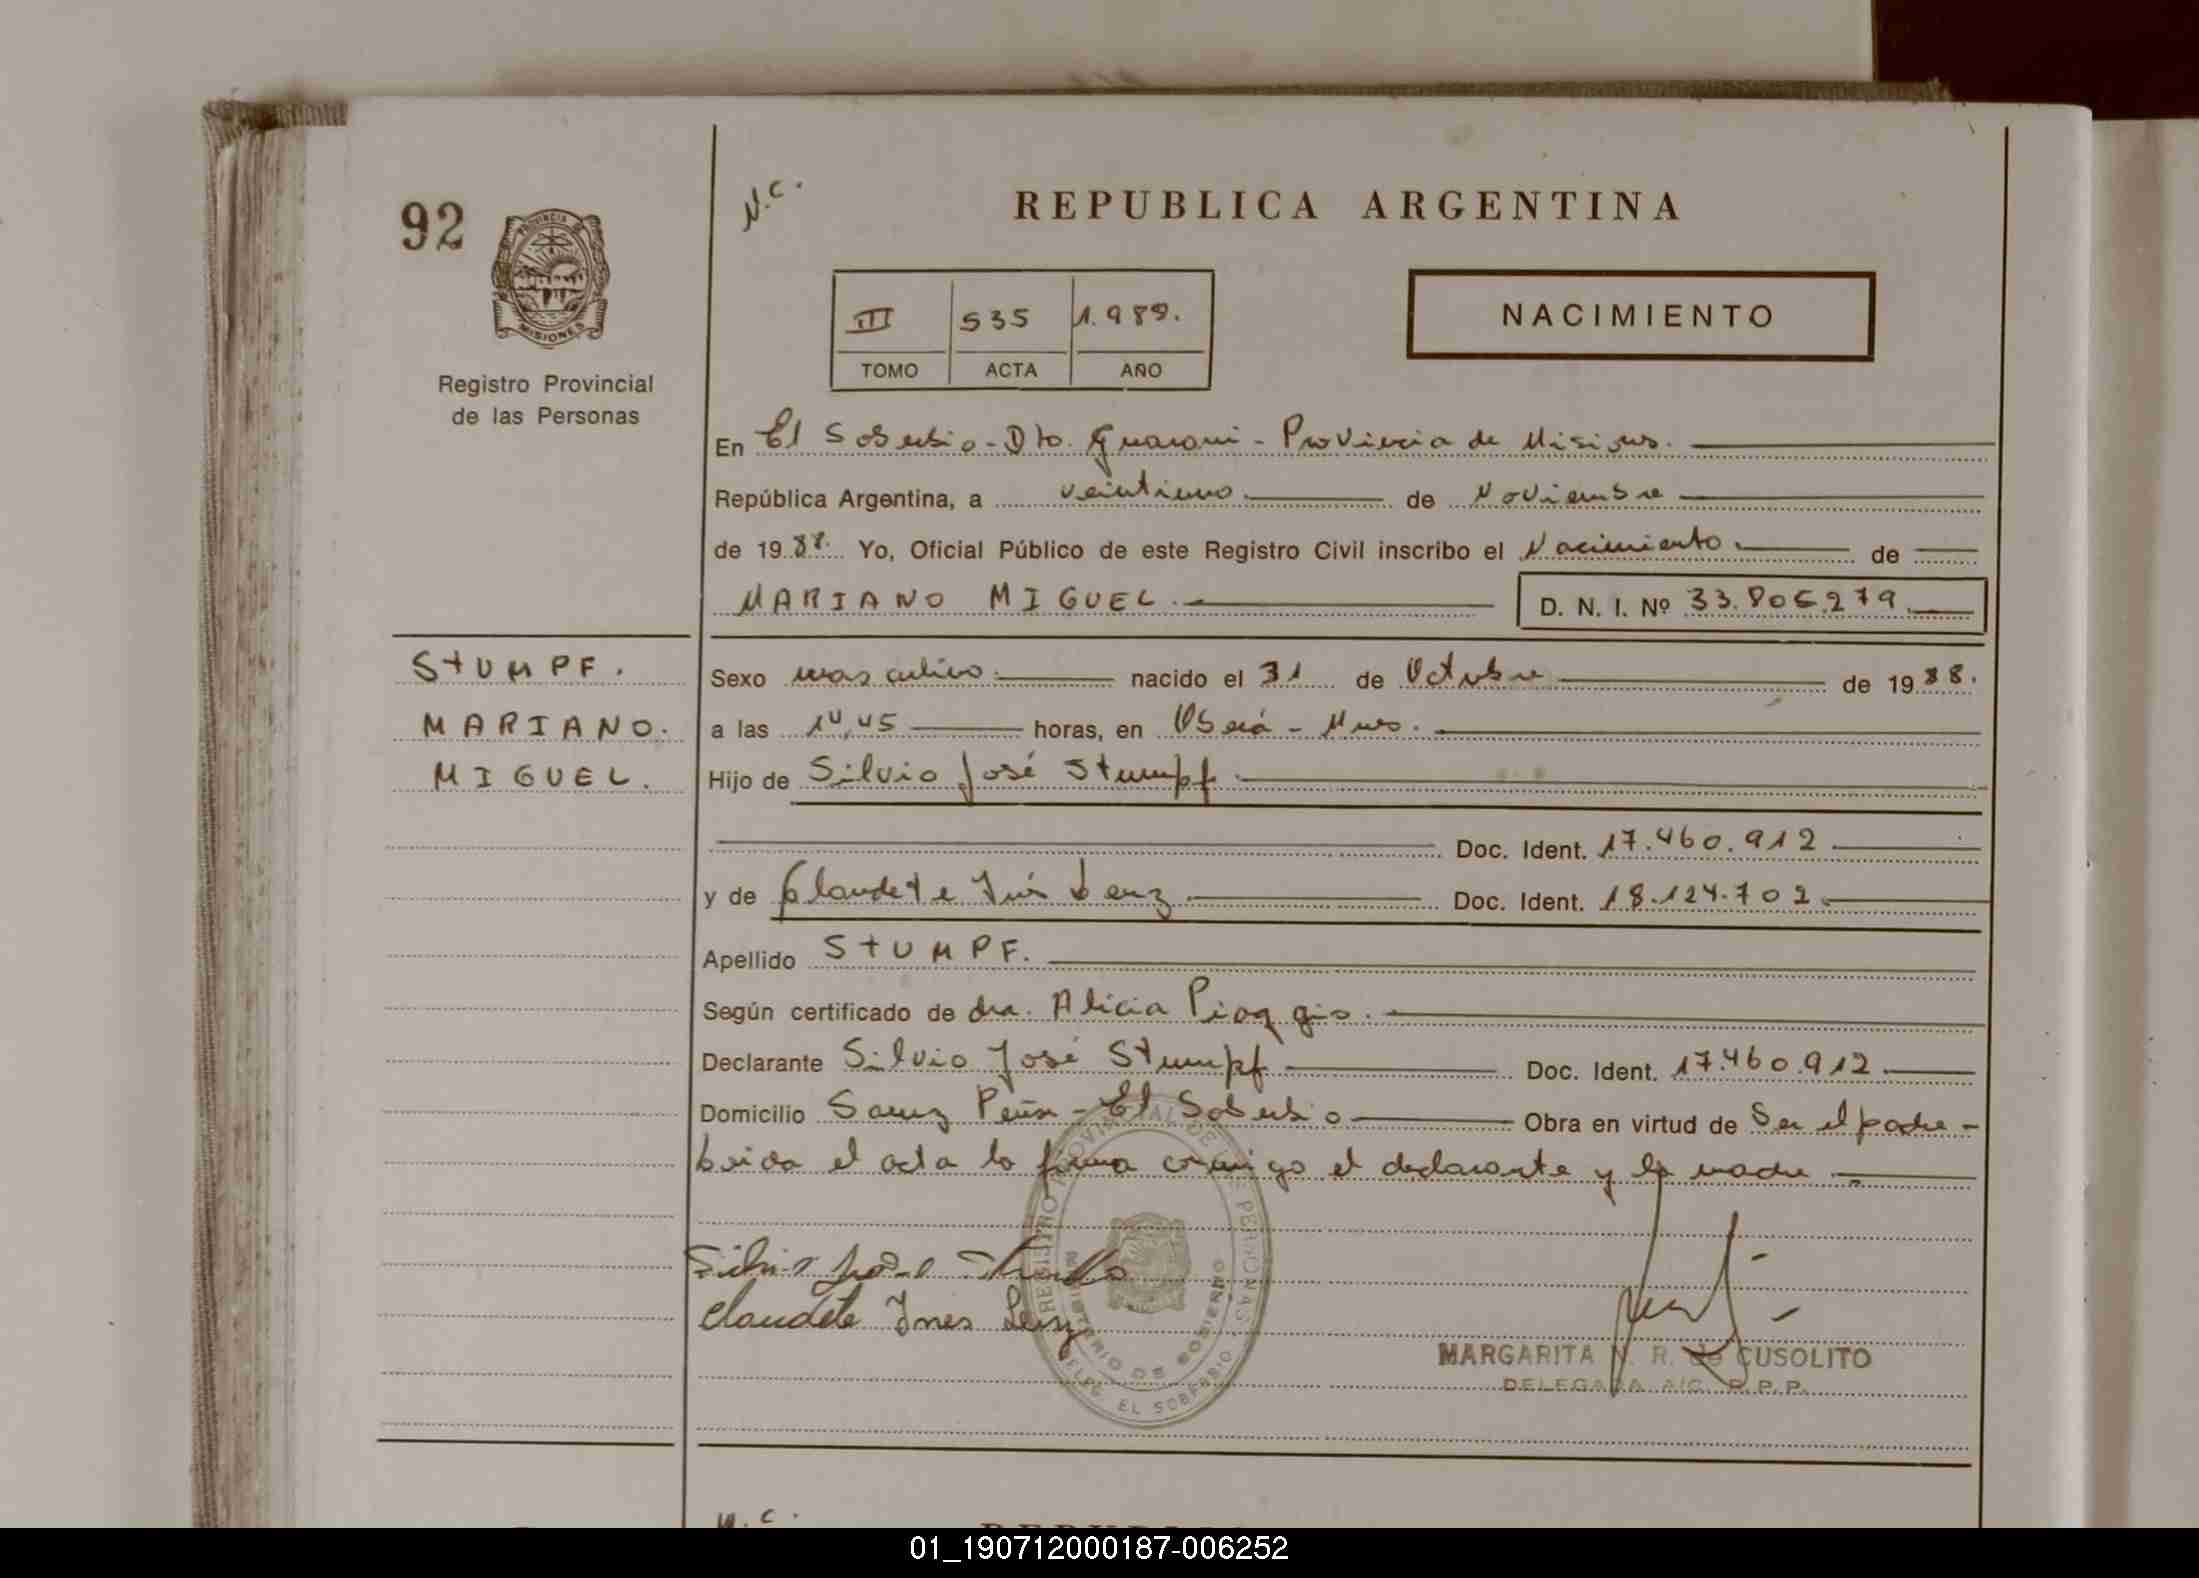 92
PROVINCIA DE
MISIONES
Registro Provincial
de las Personas
N.C.
REPUBLICA ARGENTINA
III 535 1.988.
TOMO ACTA AÑO
NACIMIENTO
En El Soberbio - Dto. Guarani - Provincia de Misiones.
República Argentina, a veintiuno de Noviembre
de 1988. Yo, Oficial Público de este Registro Civil inscribo el Nacimiento de
MARIANO MIGUEL. D. N. I. Nº 33.806.279.
STUMPF.
MARIANO.
MIGUEL.
Sexo masculino nacido el 31 de Octubre de 1988.
a las 14,45 horas, en Oberá - Mnes.
Hijo de Silvio José Stumpf
Doc. Ident. 17.460.912
y de Claudete Inés Lenz Doc. Ident. 18.124.702
Apellido STUMPF.
Según certificado de dra. Alicia Pioggio.
Declarante Silvio José Stumpf Doc. Ident. 17.460.912
Domicilio Saenz Peña - El Soberbio Obra en virtud de Ser el padre -
Leida el acta la firma conmigo el declarante y la madre
REGISTRO PROVINCIAL DE PERSONAS
MINISTERIO DE GOBIERNO
DELEG. EL SOBERBIO
Silvio José
Claudete Ines Lenz
MARGARITA N. R. de CUSOLITO
DELEGADA A/C. R.P.P.
N.C.
01_190712000187-006252